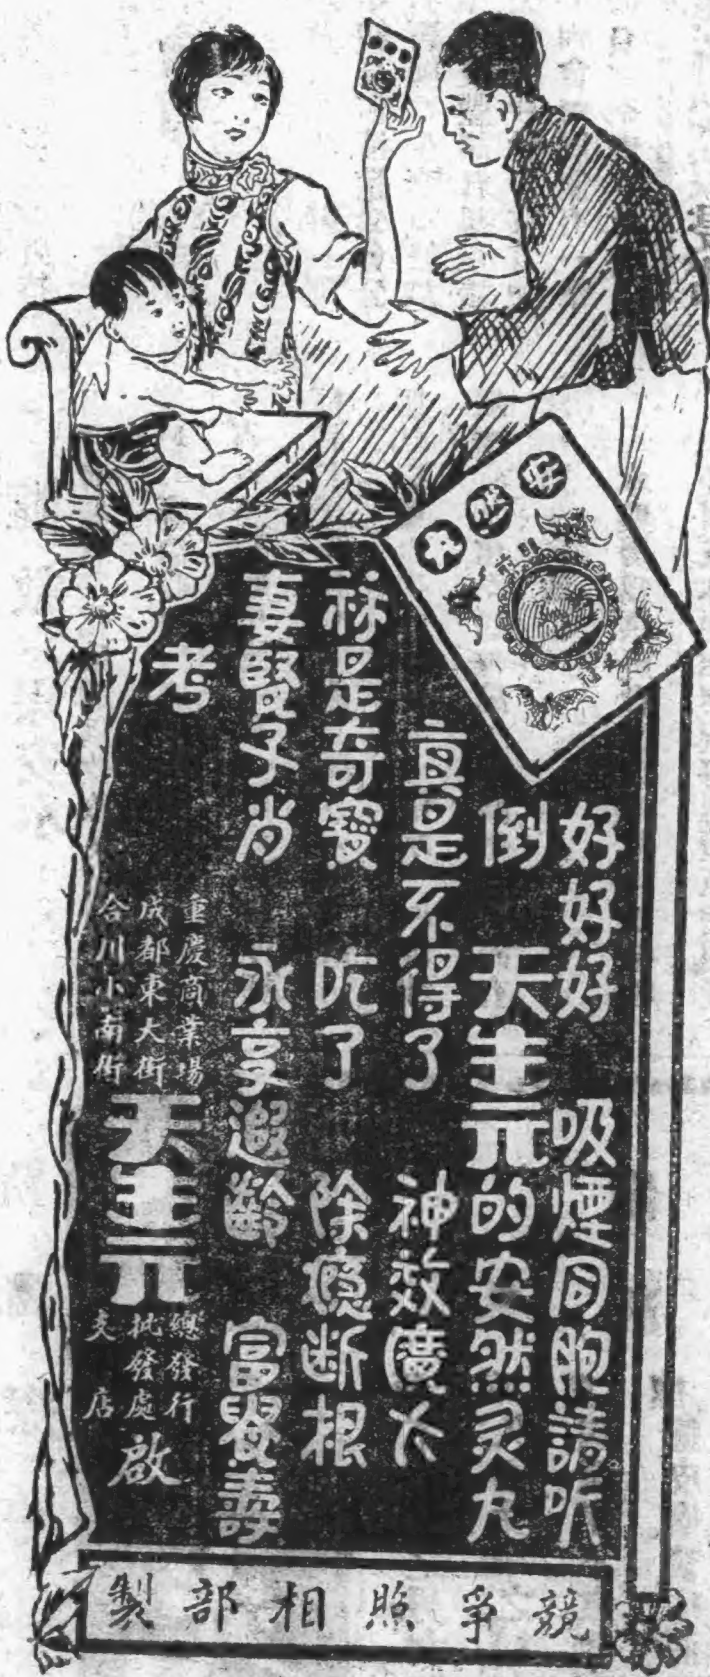 安然丸
好好好 吸煙同胞請听
倒 天生元的安然灵丸
真是不得了 神效廣大
祢是奇寶 吃了 除瘾断根
妻賢子肖 永享遐齡 富貴壽
考
重慶商業場
成都東大街
合川小南街
天生元
總發行
批發處
支店
啟
競爭照相部製